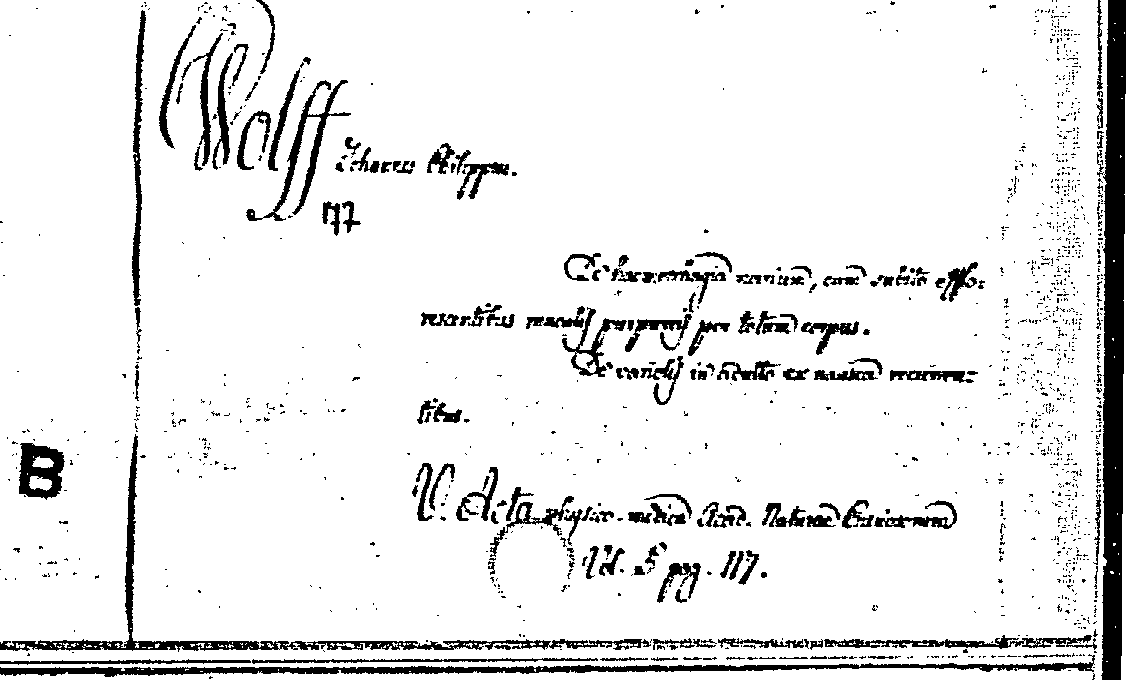 Wolff Johannes Philippus.
B
De haemorrhagia narium, cum subito effo:
rescentibus maculis purpureis per totum corpus.
De variolis in adulto ex nausea recidivan:
tibus.
V. Acta physico-medica Acad. Naturae Curiosorum
Vol. 5 pag. 117.